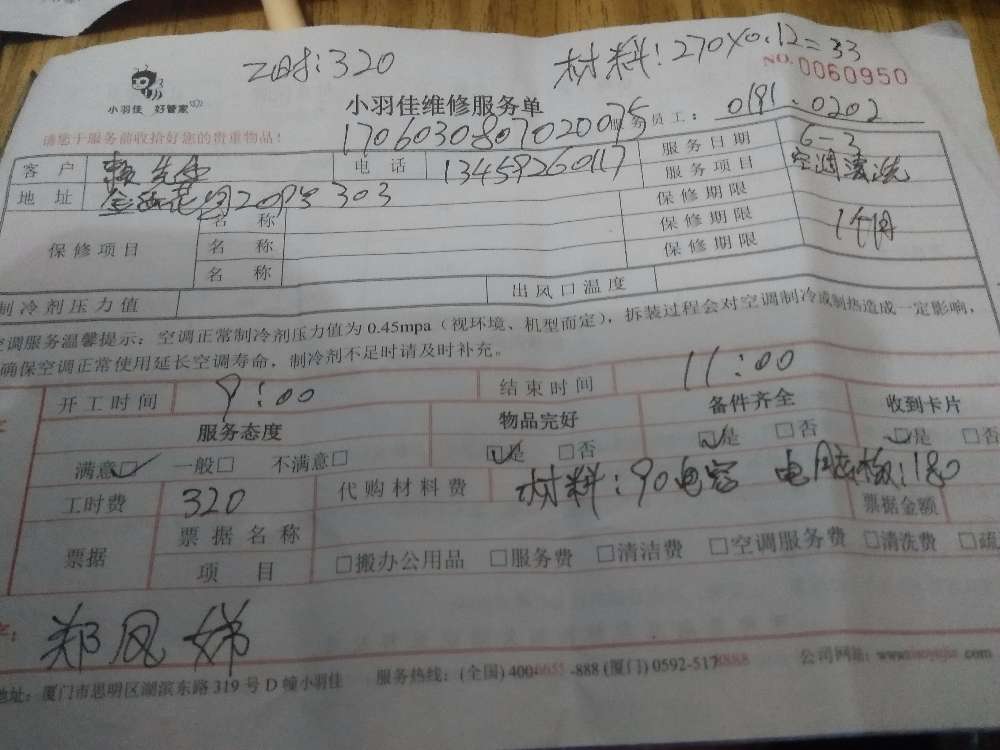 工时:320 材料:270×0.12=33
NO.0060950
小羽佳 好管家
小羽佳维修服务单
请您于服务前收拾好您的贵重物品!
服务员工: 0191.0202
1706030807020075
客户 先生 电话 13459260117 服务日期 6-3
服务项目 空调清洗
地址 209号303
保修项目 名称 保修期限
名称 保修期限 1个月
名称 保修期限
制冷剂压力值 出风口温度
空调服务温馨提示:空调正常制冷剂压力值为0.45mpa(视环境、机型而定),拆装过程会对空调制冷或制热造成一定影响,
确保空调正常使用延长空调寿命,制冷剂不足时请及时补充。
开工时间 9:00 结束时间 11:00
服务态度 物品完好 备件齐全 收到卡片
满意□ 一般□ 不满意□ □是 □否 □是 □否 □是 □否
工时费 320 代购材料费 材料:90电容 电脑板:180
票据 票据名称 票据金额
项目 □搬办公用品 □服务费 □清洁费 □空调服务费 □清洗费 □疏
郑凤娣
地址:厦门市思明区湖滨东路319号D幢小羽佳 服务热线:(全国)400 -888(厦门)0592-5178888 公司网址: